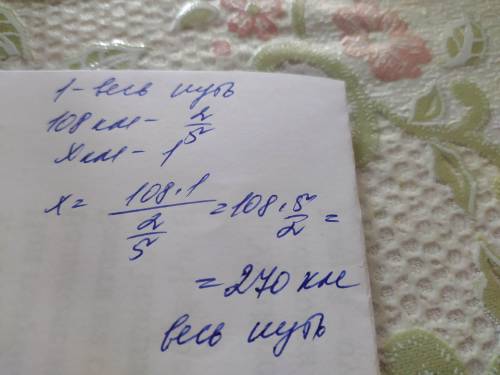 1 - весь путь
108 км - 2/5
x км - 1
x = 108 · 1 / 2/5 = 108 · 5/2 =
= 270 км
весь путь